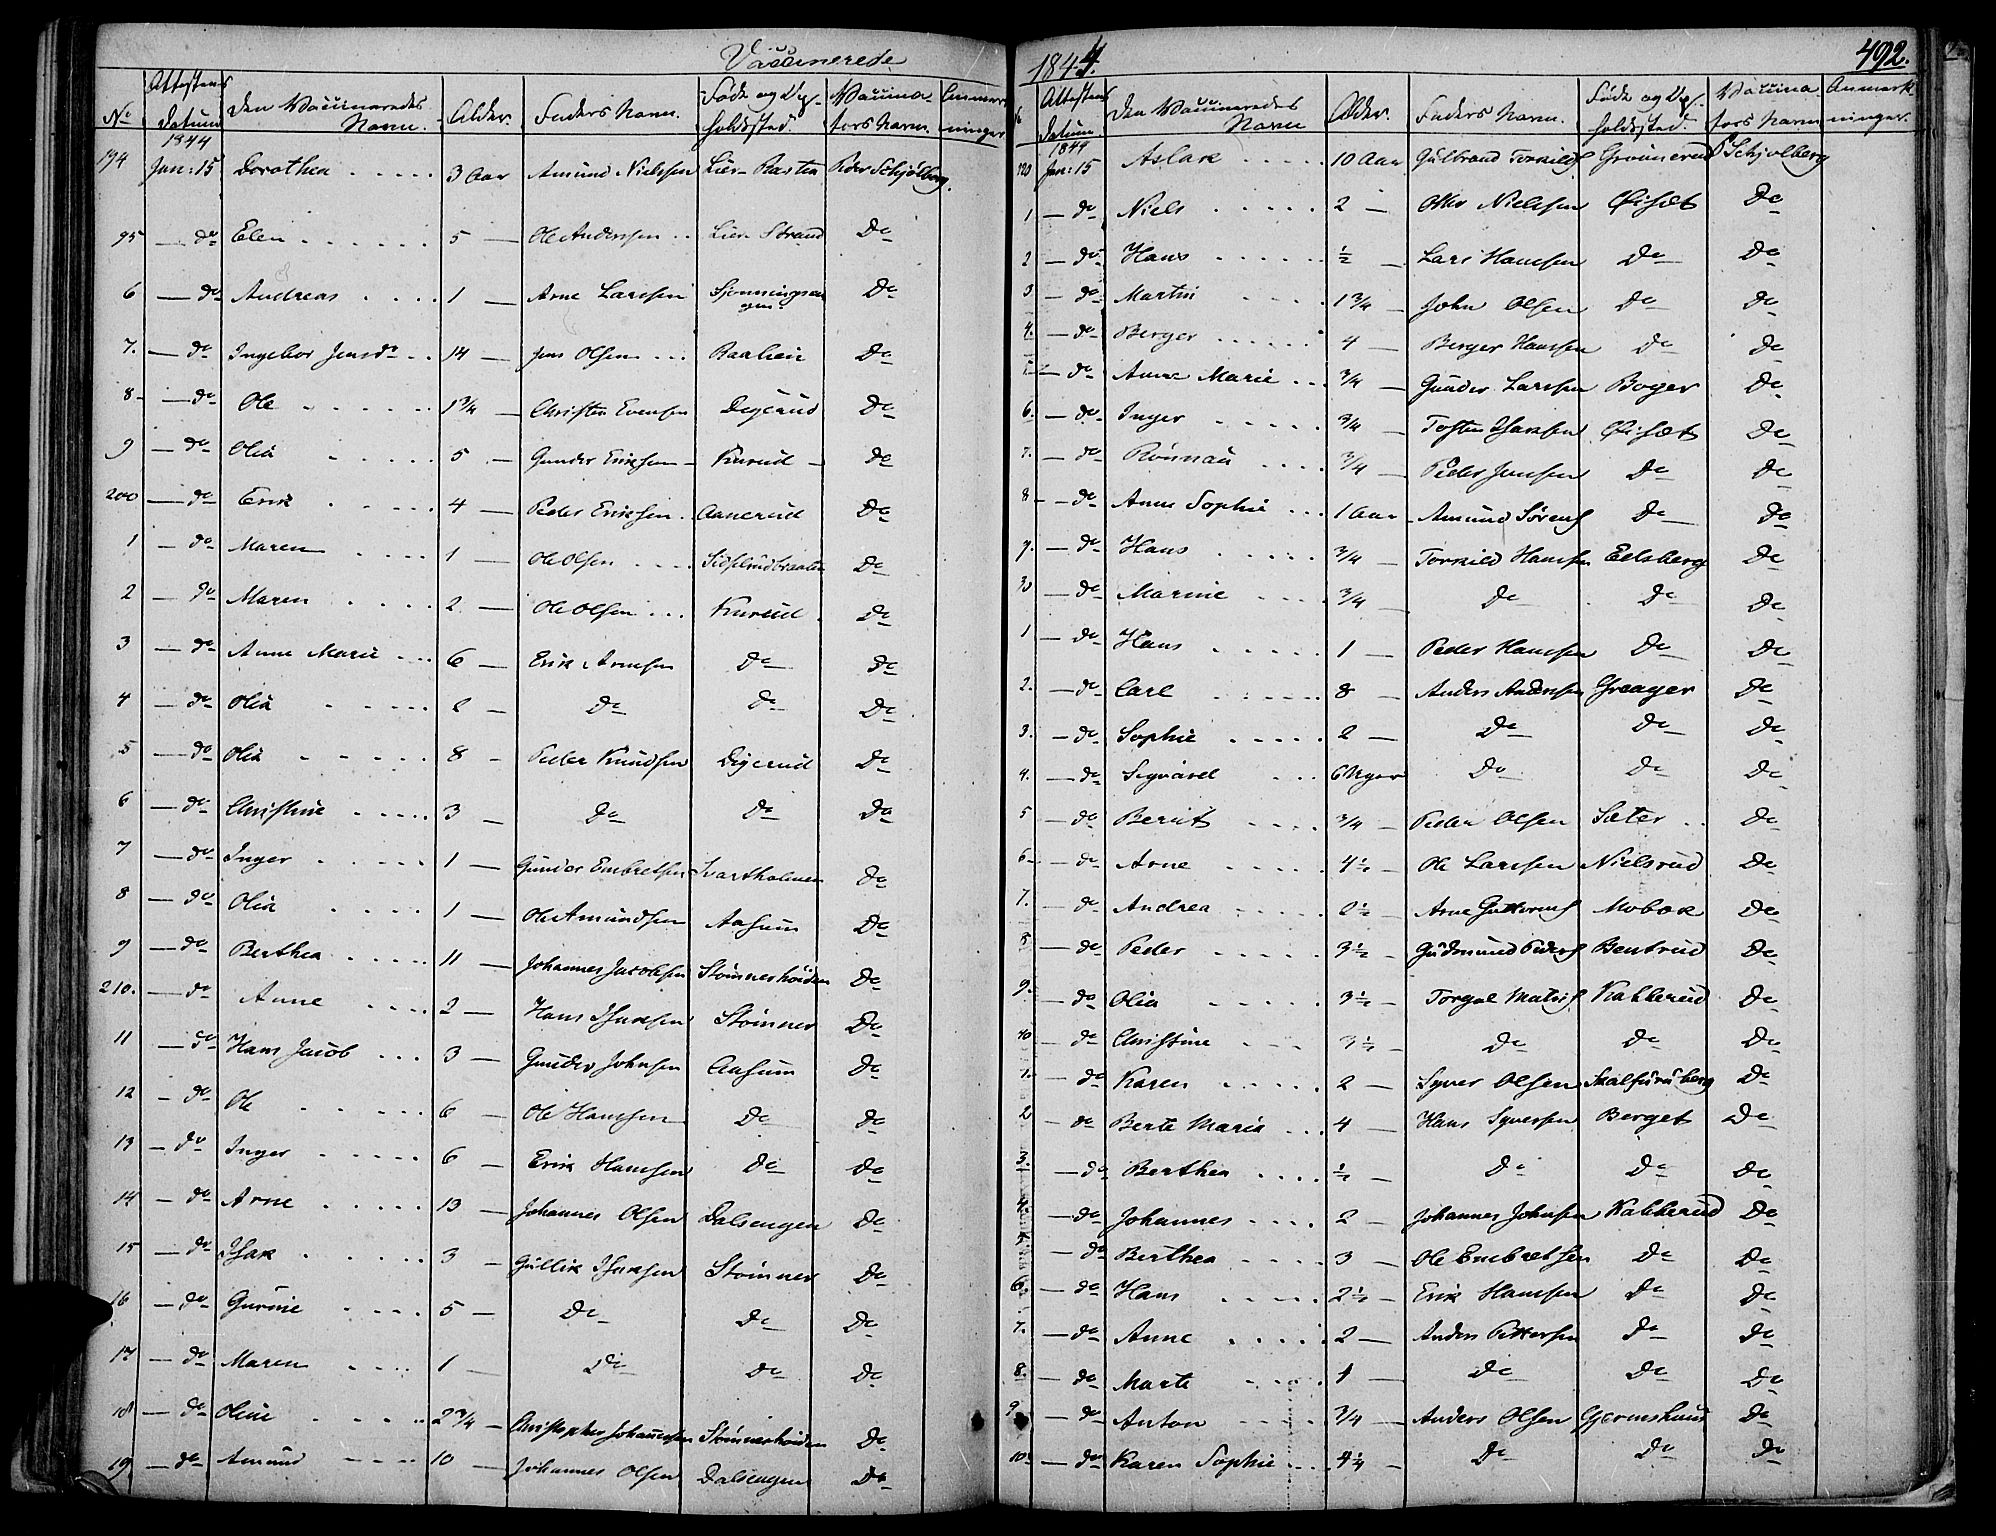 Vaccinerede
No Attestens Datum Den Vaccineredes Navn. Alder. Faders Navn. Føde og Op-holdsted. Vaccina-tors Navn. Anmærk-ninger
1844
194 Jan: 15 Dorothea 3 Aar Amund Nielssen Lier- Peder Schjølberg
95 — do Elen 5 — Ole Anderssen Lier Strand Do
6 — do Andreas 1 — Arne Larssen Do
7. — do Ingebor Jensdr 14 — Jens Olsen Do
8 — do Ole 1 3/4 — Christen Evensen Digerud Do
9 — do Olia 5 — Gunder Eriksen Knrud Do
200 — do Erik 4 — Peder Eriksen Aanerud Do
1 — do Maren 1 — Ole Olsen Do
2 — do Maren 2 — Ole Olsen Knrud Do
3 — do Anne Marie 6 — Erik Arnesen Do Do
4 — do Olia 2 — Do Do Do
5 — do Olia 8 - Peder Knudsen Digerud Do
6 — do Christine 3 — Do Do Do
7 — do Inger 1 — Gunder Embretsen Svartholmen Do
8 — do Olia 1 — Ole Amundsen Aasum Do
9 — do Berthea 11 — Johannes Jacobsen Stømnerhøiden Do
210. — do Anne 2 — Hans Isaksen Stømner Do
11 — do Hans Jacob 3 — Gunder Johnsen Aasum Do
12 — do Ole 6 — Ole Hansen Do Do
13 — do Inger 6 — Erik Hansen Do Do
14 — do Arne 13 — Johannes Olsen Dalsengen Do
15 — do Isak 3 — Gullik Isaksen Stømner Do
16 — do Gurine 5 — Do Do Do
17 — do Maren 1 — Do Do Do
18 — do Oline 2 3/4 — Christopher Johannesen Stømnerhøiden Do
19 — do Amund 10 — Johannes Olsen Dalsengen Do
1844. 492.
Attestens Datum Den Vaccineredes Navn Alder. Faders Navn. Føde og Op-holdsted. Vaccina-tors Navn Anmærk-ninger.
1844
220 Jan: 15 Aslak 10 Aar Gulbrand Torkilds Grønnerud P Schjølberg
1 — do Niels 2 — Nielsen Øisæt Do
2 — do Hans 1/2 — Lars Hansen Do Do
3 — do Martin 1 3/4 — John Olsen Do Do
4. — do Berger 4 — Berger Hansen Do Do
5 — do Anne Marie 3/4 — Gunder Larssen Boger Do
6. — do Inger 3/4 — Tosten Isaksen Øisæt Do
7. — do Rønnau 3/4 — Peder Jensen Do Do
8 — do Anne Sophie 1 Aar Amund Sørens Do Do
9. — do Hans 3/4 — Torkild Hansen Eelsberg Do
30 — do Marine 3/4 — Do Do Do
1 — do Hans 1 — Peder Hansen Do Do
2. — do Carl 8 — Anders Andersen Greager Do
3. — do Sophie 2 — Do Do Do
4. — do Sigvard 6 Uger Do Do Do
5 — do Berut 3/4 — Peder Olsen Sæter Do
6 — do Arne 4 1/2 — Ole Larssen Nielsrud Do
7. — do Andrea 2 1/2 — Arne Guttorms Mobæk Do
8 — do Peder 3 1/2 — Gudmund Peders Bentrud Do
9. — do Olia 3 1/2 — Torgal Kakkerud Do
40 — do Christine 3 1/2 — Do Do Do
1. — do Karen 2 — Syver Olsen Do
2 — do Berte Maria 4 — Hans Syversen Berget Do
3. — do Berthea 1/2 — Do Do Do
4. — do Johannes 2 — Johannes Johnsen Kakkerud Do
5 — do Berthea 3 — Ole Embretsen Do Do
6. — do Hans 2 1/2 — Erik Hansen Do Do
7. — do Anne 2 — Anders Pettersen Do Do
8. — do Marte 1 — Do Do Do
9 — do Anton 3/4 — Anders Olsen Gjermshuus Do
10 — do Karen Sophie 4 1/4 — Do Do Do